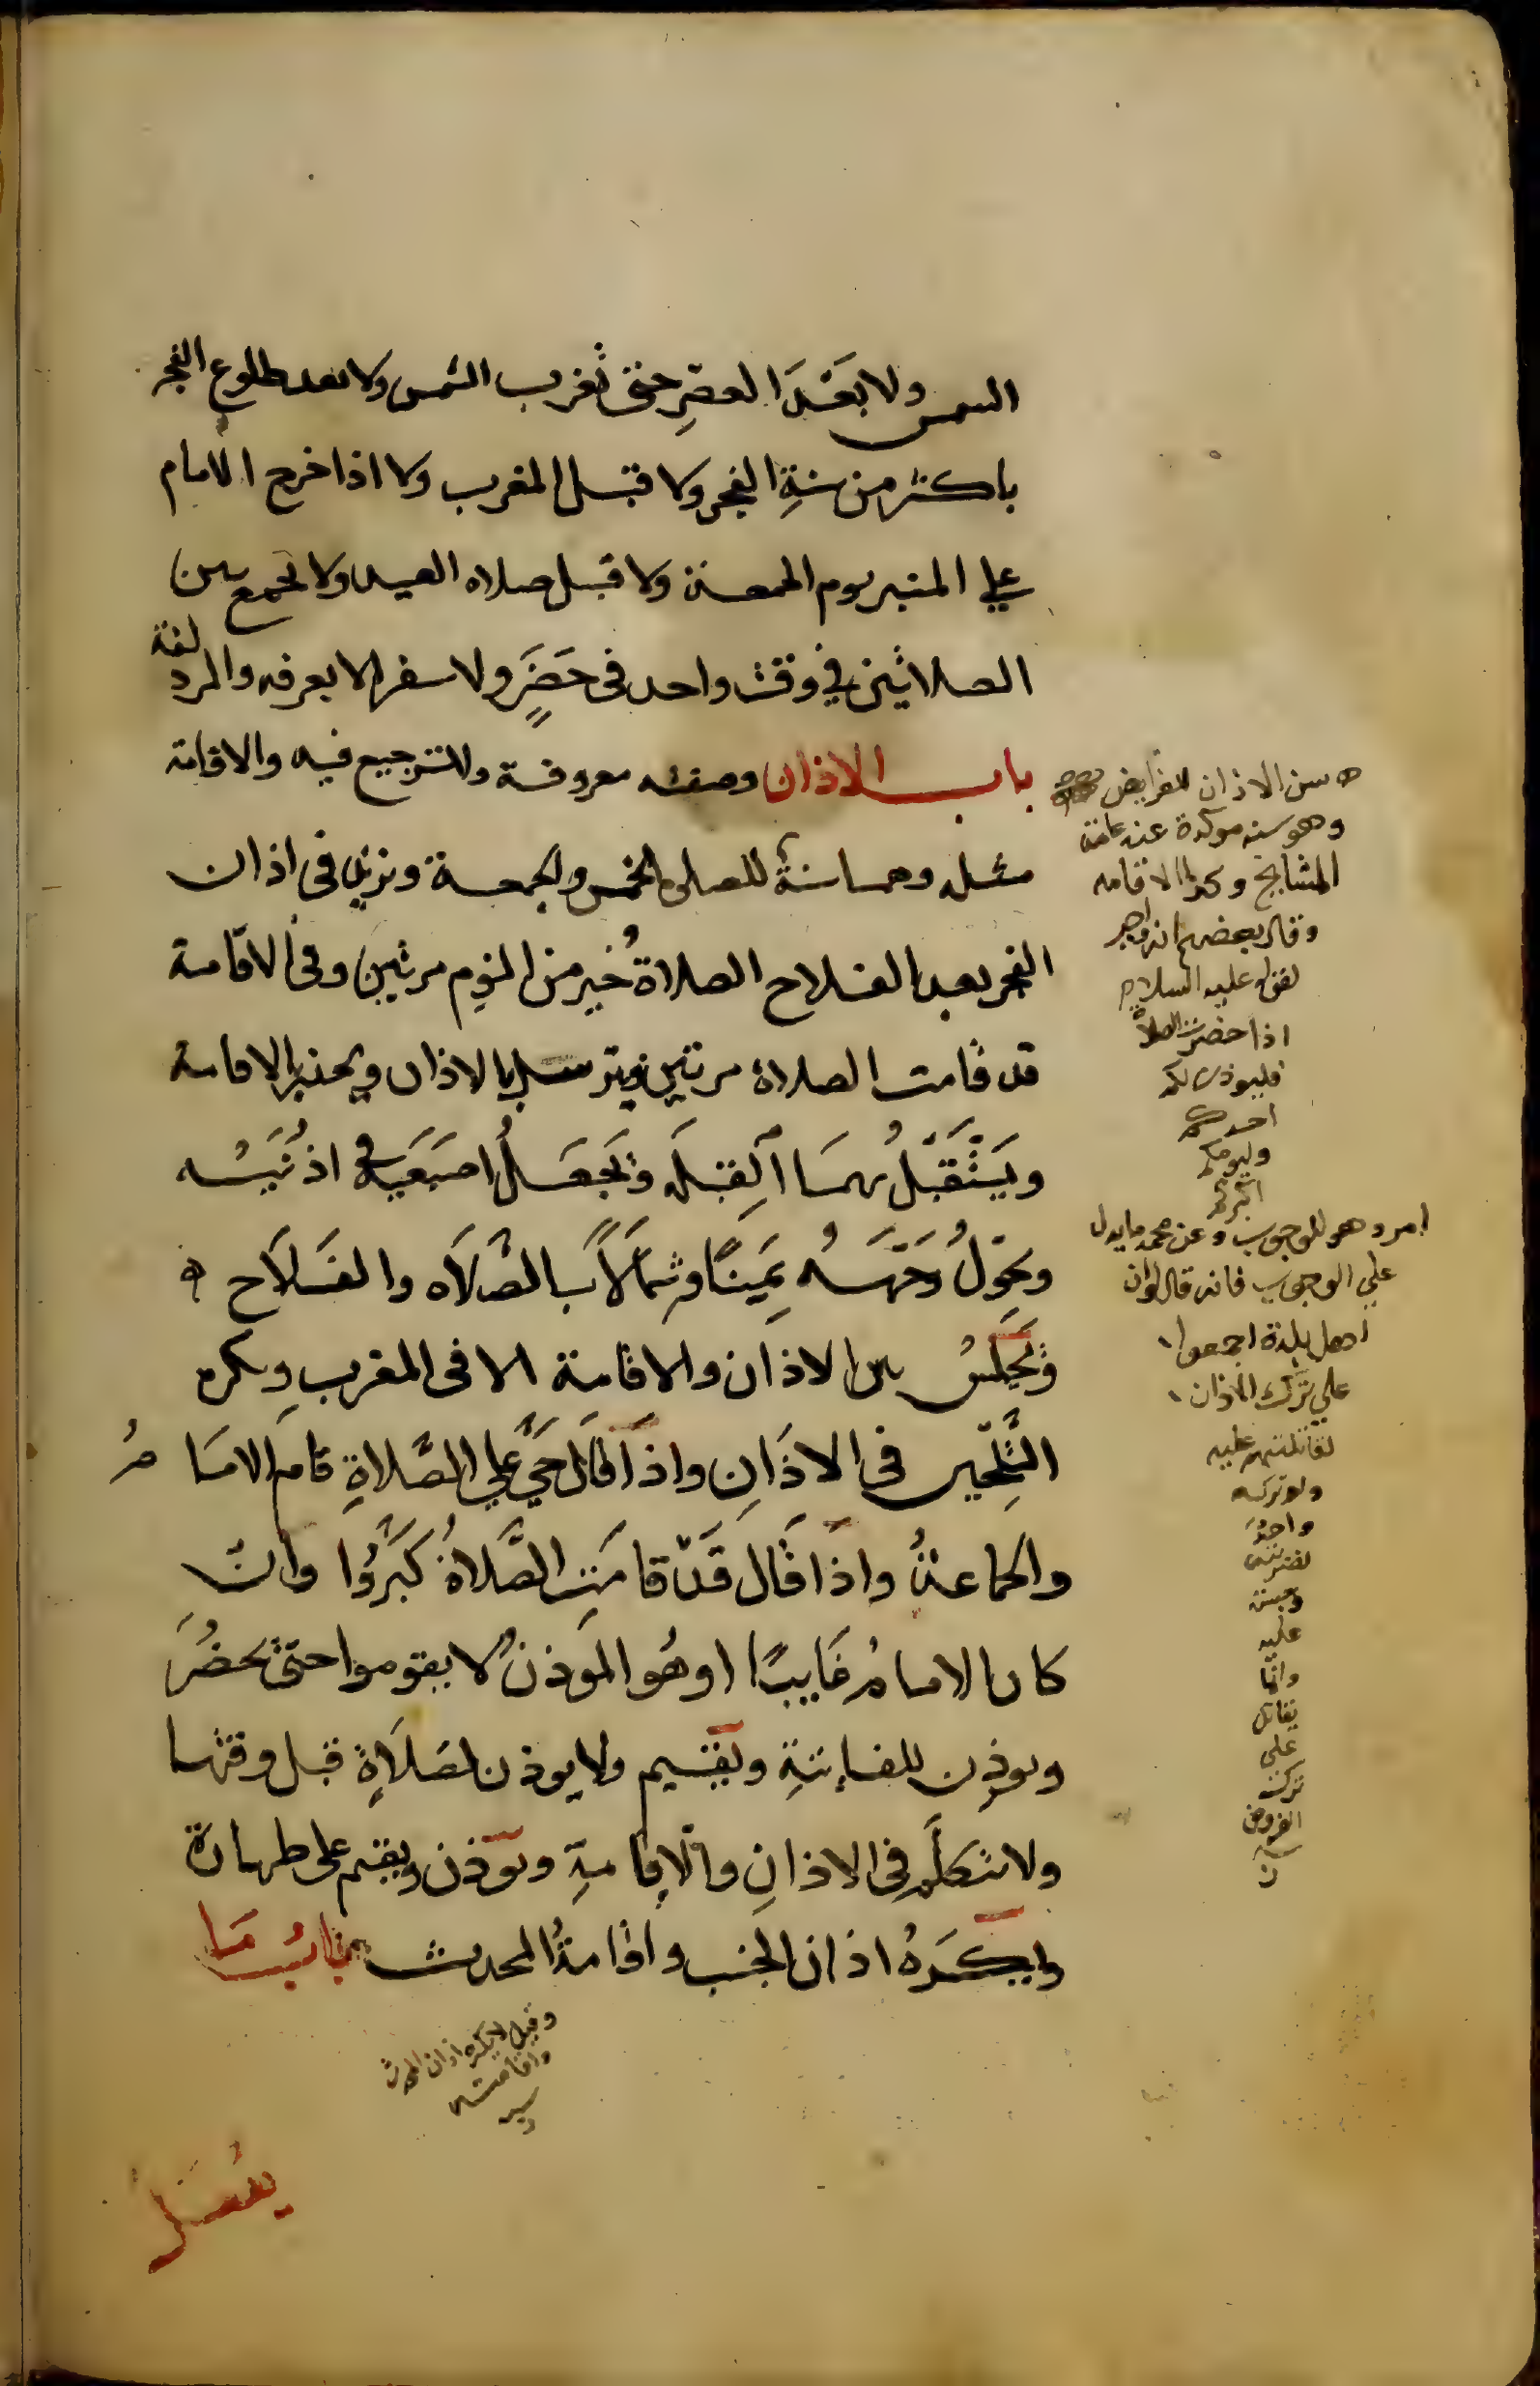 الشمس ولا بَعْدَ العصرِ حتى تغرب الشمس ولا بعد طلوع الفجر
باكثر من سنةِ الفجر ولا قبل المغرب ولا اذا خرج الامام
على المنبر يوم الجمعة ولا قبل صلاه العيد ولا يجمع بين
الصلاتين في وقت واحد في حَضَرٍ ولا سفر الا بعرفه والمزدلفة
باب الاذان وصفته معروفة ولا ترجيع فيه والاقامة
مثله وهما سنة للصلوات الخمس والجمعة ويزيد في اذان
الفجر بعد الفلاح الصلاةُ خير من النوم مرتين وفي الاقامة
قد قامت الصلاة مرتين ويترسل بالاذان ويحدر بالاقامة
ويَسْتَقْبِلُ بهما القِبلَه ويَجعَلُ اصبعَيه في اذنَيْه
ويحوّلُ وَجْهَهُ يَمِينًا وشِمَالًا بالصَّلَاه والفَلَاح
ويَجلسُ بين الاذان والاقامة الا في المغربِ ويكره
التَّلْحين في الاذَانِ واذا قَالَ حَيَّ على الصَّلاةِ قام الامَامُ
والجماعةُ واذَا قَال قَدْ قامَتِ الصَّلاةُ كَبَّرُوا وان
كان الامامُ غَايبًا او هُو الموذنُ لا يقوموا حتى يَحضُرَ
ويوذن للفائتةِ ويُقيم ولا يوذن لصَلَاةٍ قبل وقتها
ولا يتكلّم في الاذانِ والاِقامةِ ويوذن ويقيم على طهارة
ويكرَهُ اذان الجنب واقامةُ المحدث بابُ مَا
يفعَل
سن الاذان للفرايض
وهو سنه موكدة عند عامة
المشايخ وكذا الاقامه
وقال بعضهم انه واجب
لقوله عليه السلام
اذا حضرت الصلاة
فليوذن لكم
احدكم
وليومكم
اكبركم
امر وهو للوجوب وعن محمد ما يدل
على الوجوب فانه قال لو ان
اهل بلدة اجمعوا
على ترك الاذان
لقاتلتهم عليه
ولو تركه
واحدٌ
لضربته
وحبسته
عليه
وانما
يقاتل
على
ترك
الفروض
وقيل لا يكره اذان المحدث
واقامته